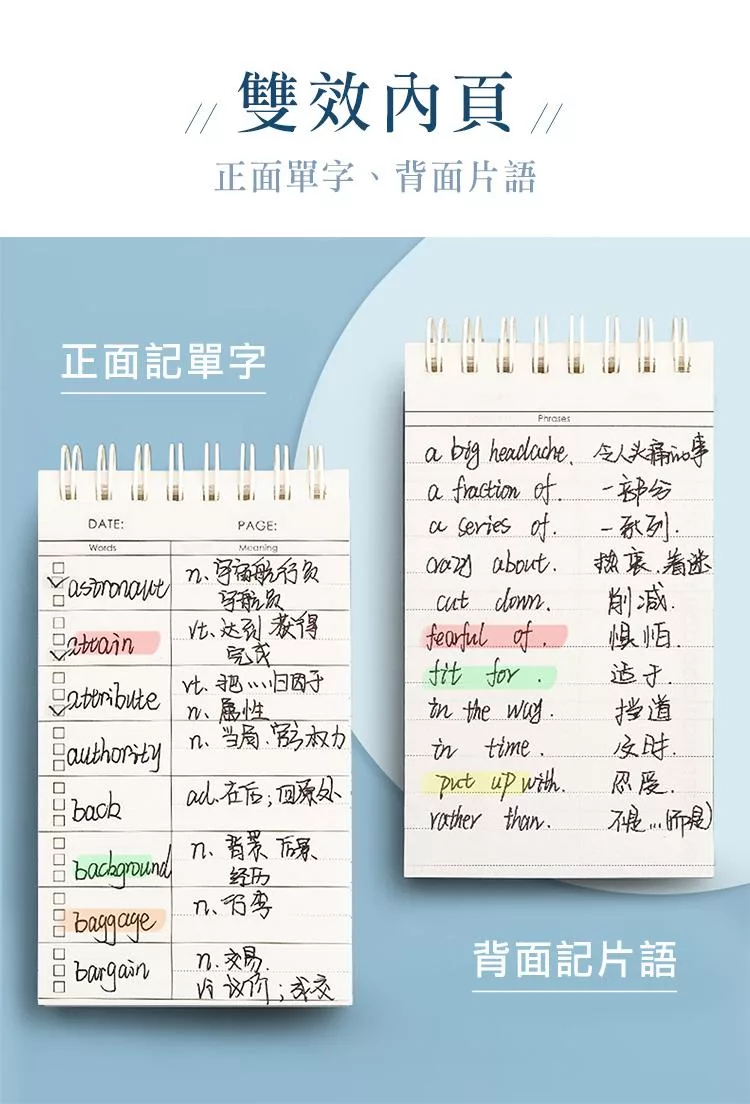 雙效內頁
正面單字、背面片語
正面記單字
Phrases
a big headache. 令人头痛的事
a fraction of. 一部分
a series of. 一系列.
crazy about. 热衷.着迷
cut down. 削减.
fearful of. 惧怕.
fit for. 适于.
in the way. 挡道
in time. 及时.
put up with. 忍受.
rather than. 不是...(而是)
背面記片語
DATE: PAGE:
Words Meaning
astronaut n. 宇宙航行员
宇航员
attain vt. 达到 获得
完成
attribute vt. 把...归因于
n. 属性
authority n. 当局.官方 权力
back ad. 在后;回原处
background n. 背景 后景
经历
baggage n. 行李
bargain n. 交易.
vi 议价;成交